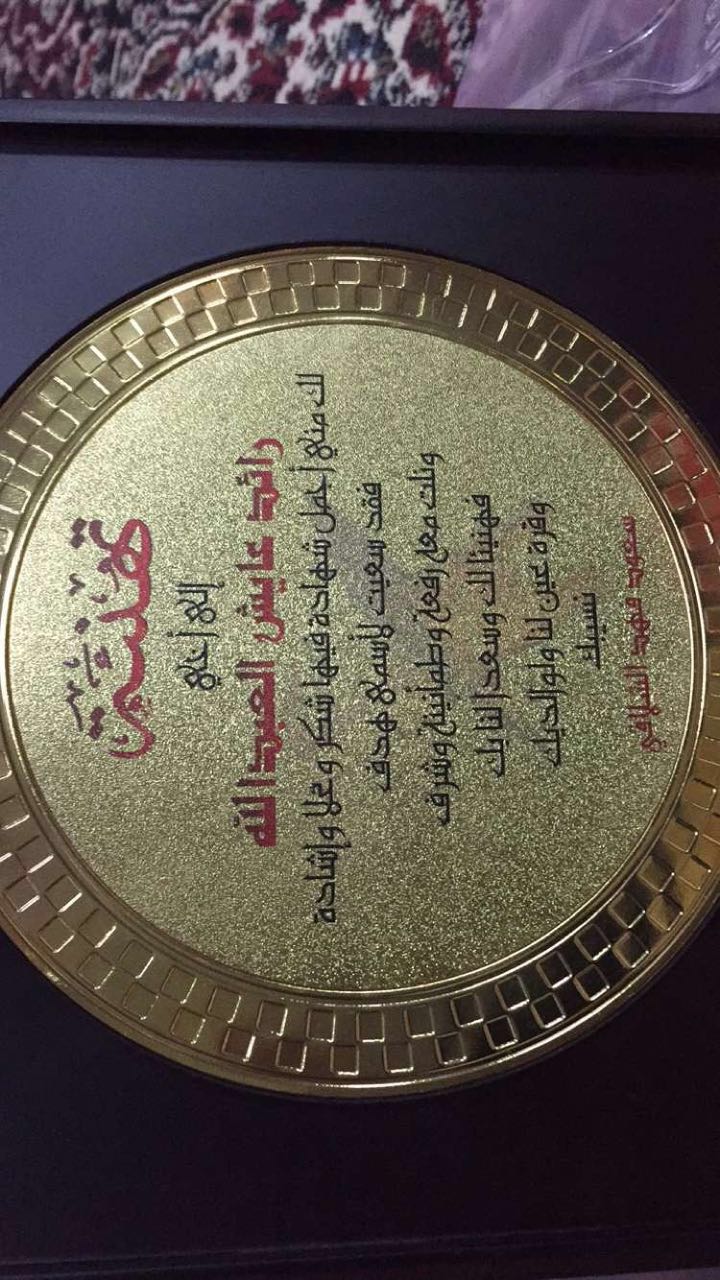 تهنئة
إلى أخي
رائد عايش العبدالله
لك مني أجمل شهادة فيها شكر وعلا وإشادة
فقد سعيت لأسمى هدف
ونلت معه رفعة وطمأنينة وشرف
فهنيئا لك وسعدا لنا بك
وقرة عين لنا ولوالديك
نسيبك
سعود فهيد الشلاقي